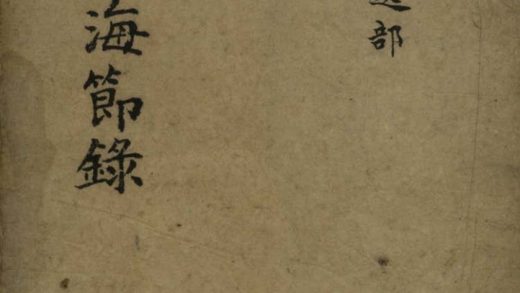 部
海節錄